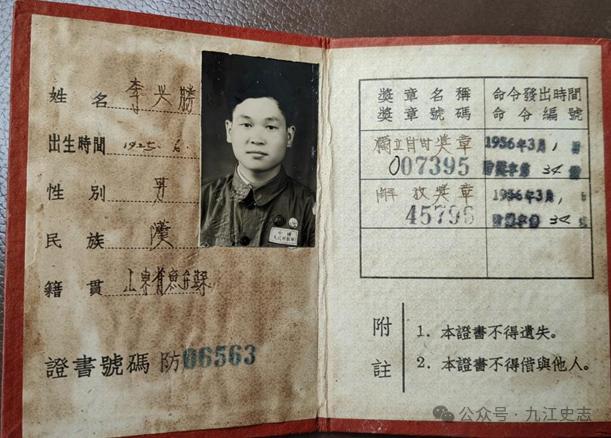 姓名 李兴勝
出生時間 1925.6.
性別 男
民族 漢
籍貫 山東省
證書號碼 防06563
獎章名稱
獎章號碼
命令發出時間
命令編號
獨立自由獎章
007395
1956年3月1日
34
解放獎章
45796
1956年3月1日
34
附註
1. 本證書不得遺失。
2. 本證書不得借與他人。
公众号·九江史志